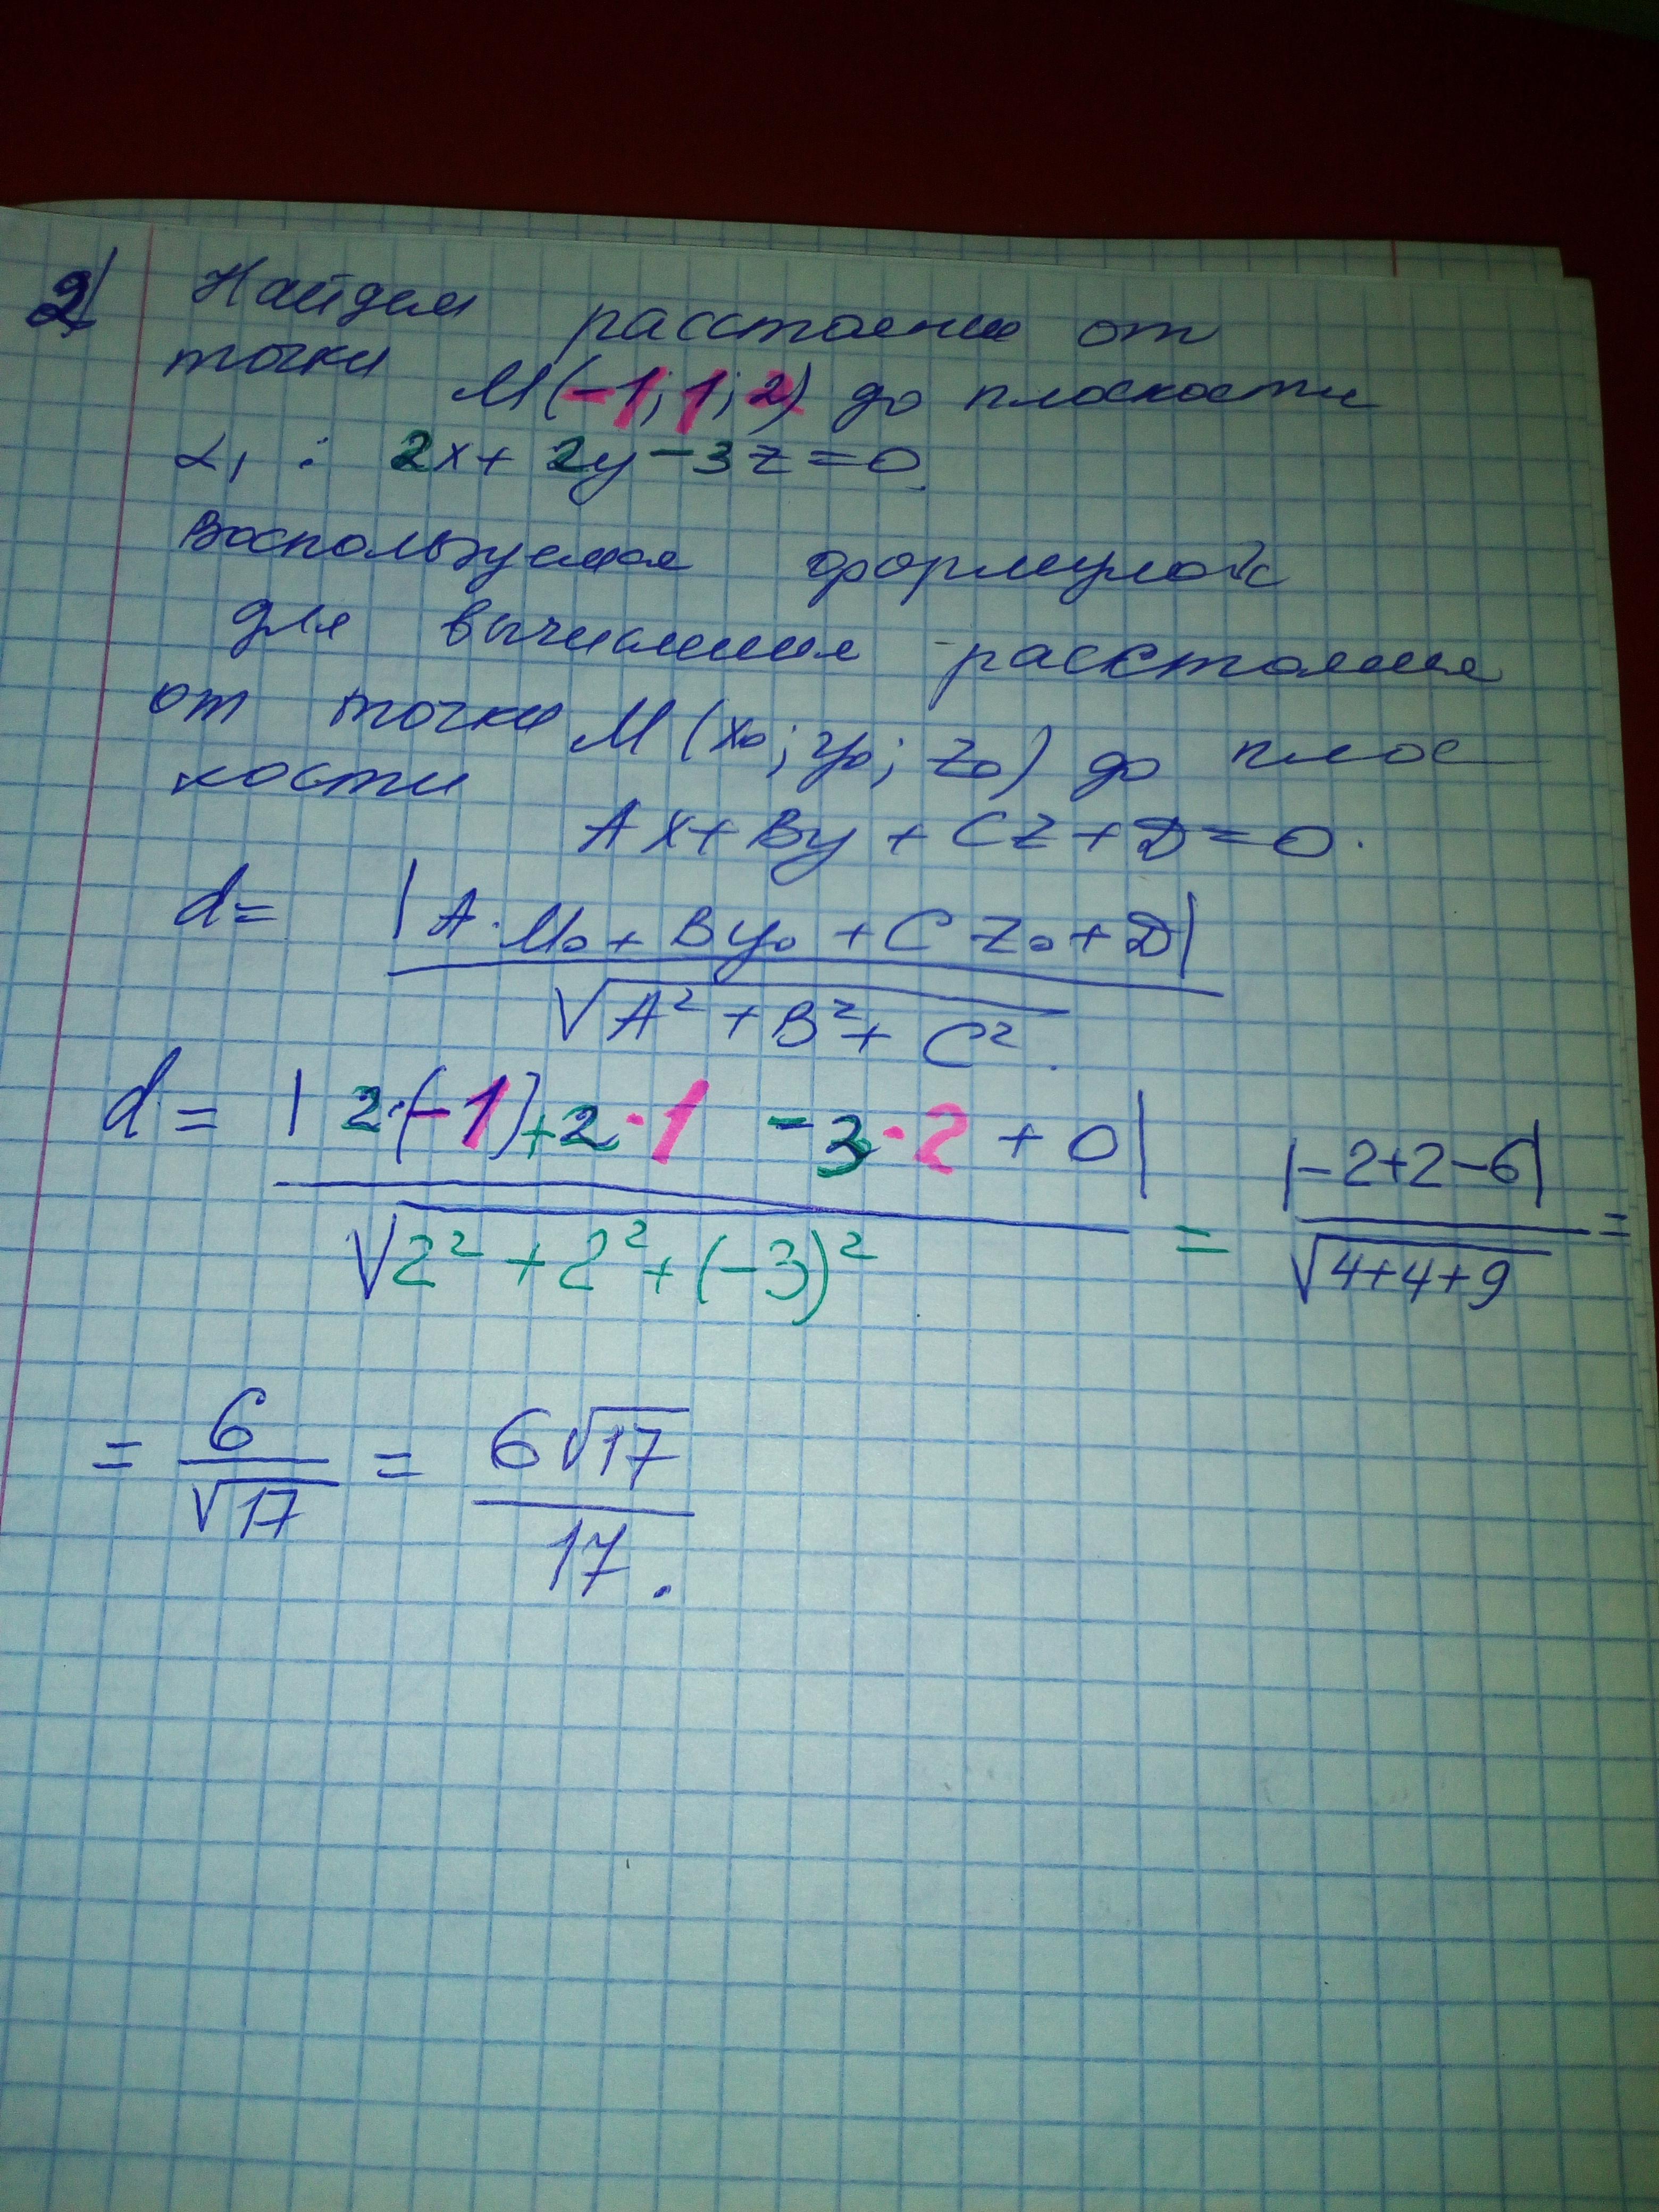 2) Найдем расстояние от
точки M(-1; 1; 2) до плоскости
α₁ : 2x + 2y - 3z = 0.
Воспользуемся формулой
для вычисления расстояния
от точки M (x₀; y₀; z₀) до плос
кости
Ax + By + Cz + D = 0.
d = |A·M₀ + By₀ + Cz₀ + D| / √(A² + B² + C²).
d = |2·(-1) + 2·1 - 3·2 + 0| / √(2² + 2² + (-3)²) = |-2+2-6| / √(4+4+9) =
= 6/√17 = 6√17/17.